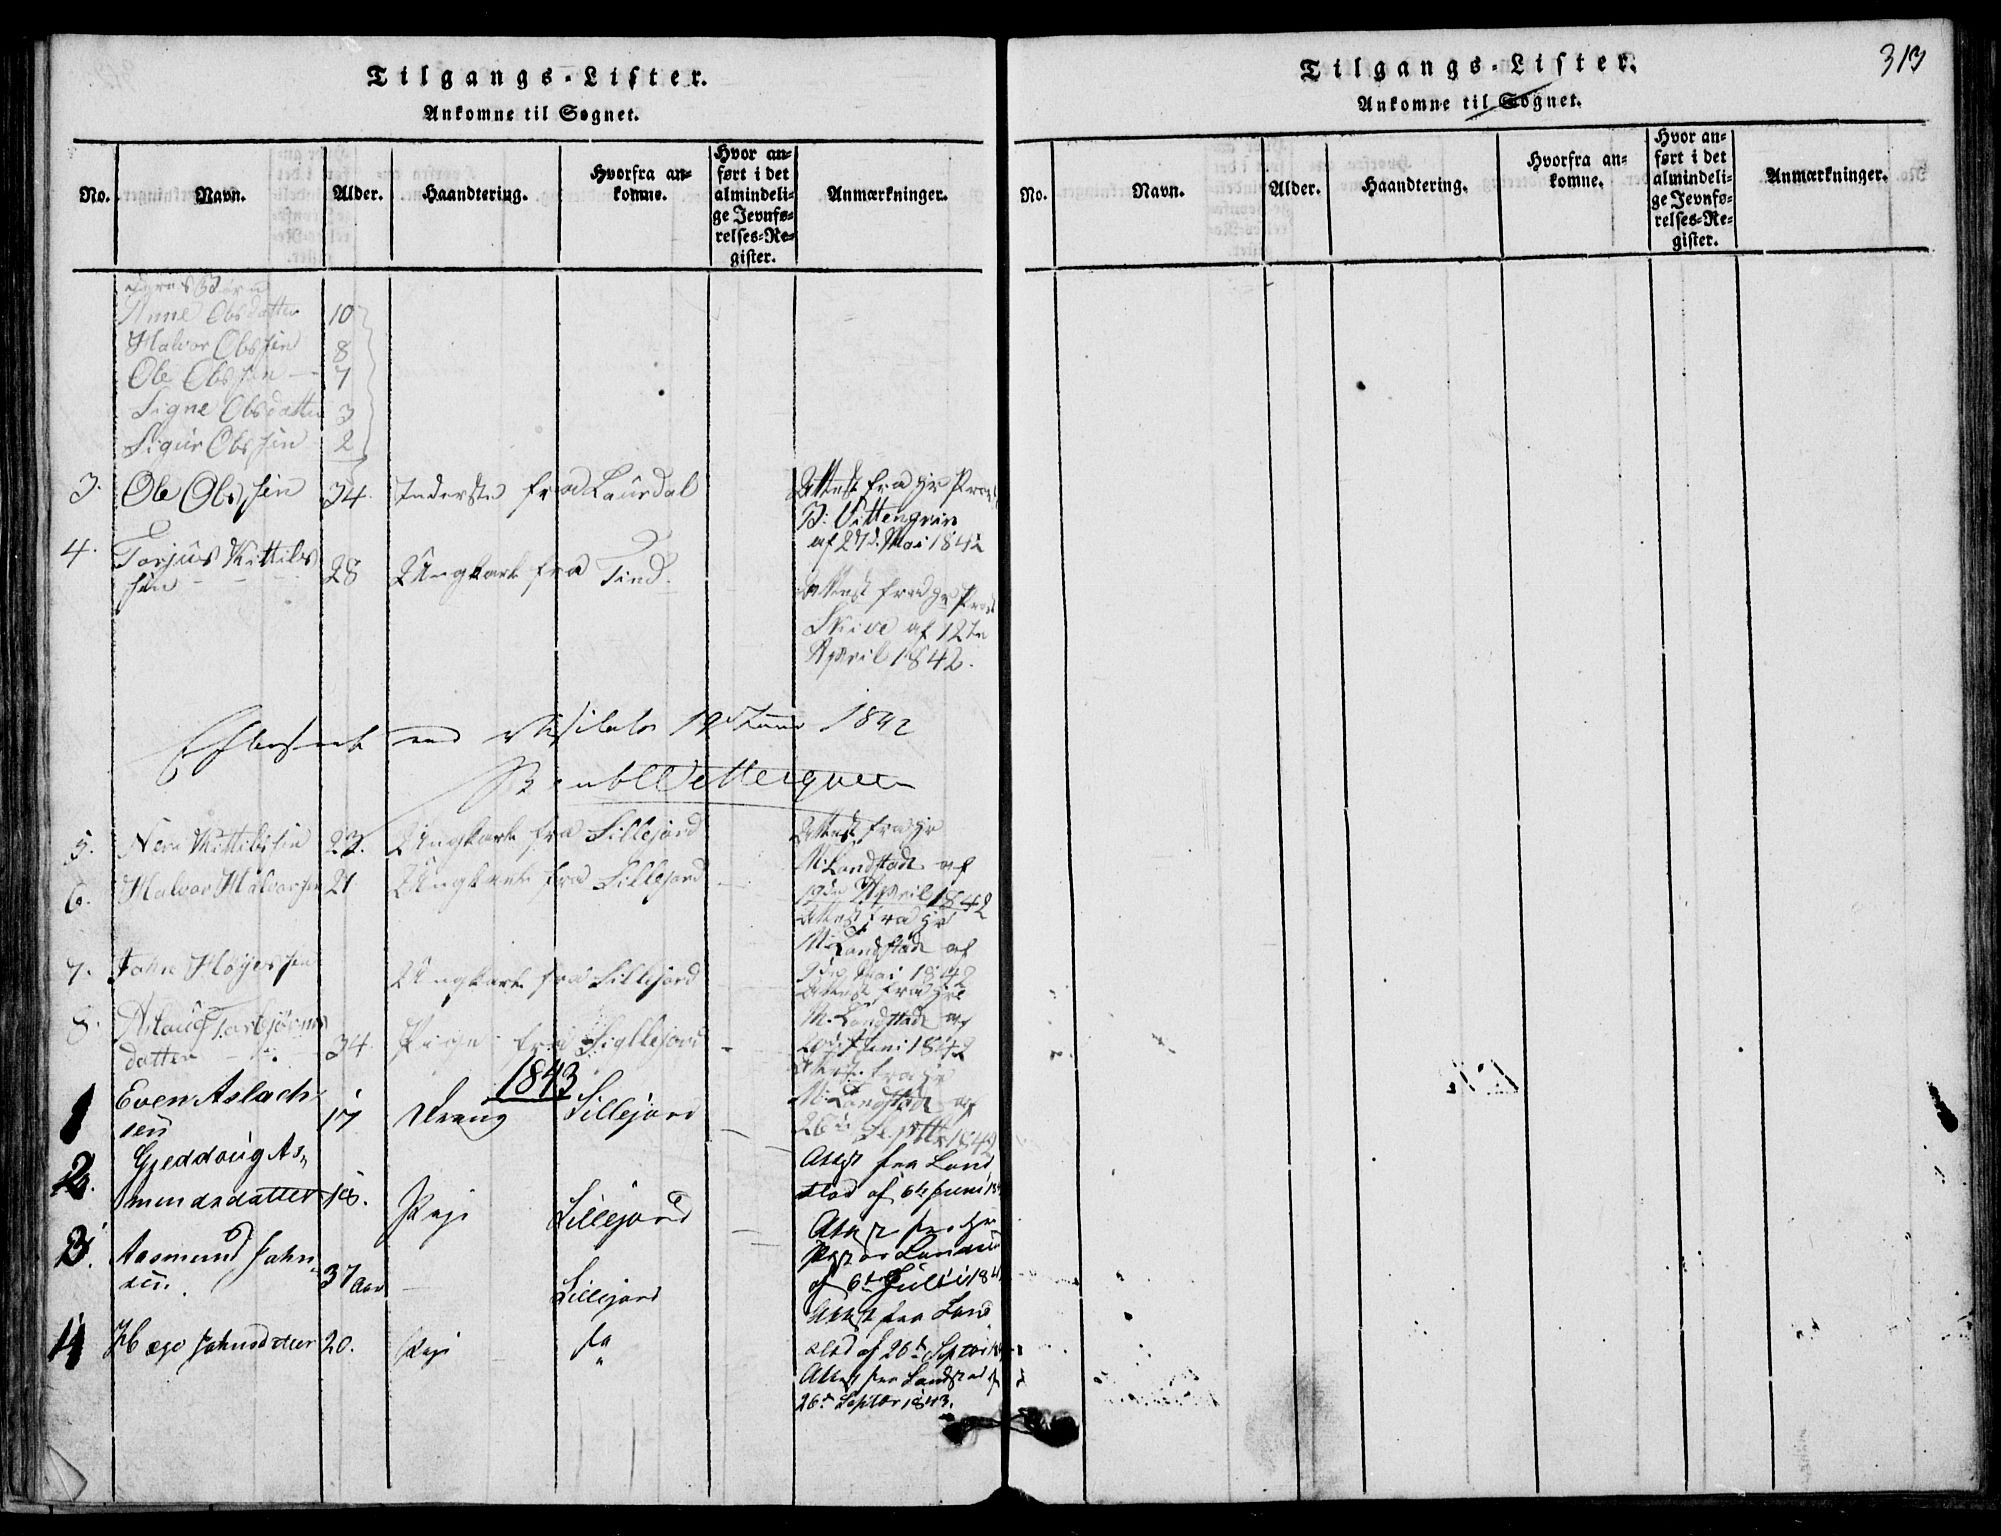 Tilgangs-Lister.
Ankomne til Sognet.
No.
Navn.
Alder.
Haandtering.
Hvorfra an-
komne.
Hvor an-
ført i det
almindeli-
ge Jevnfø-
relses-Re-
gister.
Anmærkninger.
Anne Olsdatter 10
Halvor Olssøn 8
Ole Olssøn 7
Signe Olsdatter 3
Sigur Olssøn 2
3. Ole Olssøn 34. Inderste fra Laurdal
Attest fra Hr Provst
af 27d. Mai 1842
4. Torjus Kittils
søn 28 Ungkarl fra Tind.
Attest fra Hr Provst
af 12te
April 1842.
Efterseet ved Visitats 12 Juni 1842
5. Kittilssøn 23. Ungkarl fra Sillejord
Attest fra Hr
M. Landstad af
19de April 1842
6. Halvor Halvorsen 21 Ungkarl fra Sillejord
Attest fra Hr
M. Landstad af
Mai 1842
7. John Ungkarl fra Sillejord
Attest fra Hr
M. Landstad af
Juni 1842
8. Aslaug Torbjørns
datter 34. Pige fra Sillejord
Attest fra Hr
M. Landstad af
26de Septbr 1842
1843
1 Even Aslach
sen 17 Dreng Sillejord
Attest fra Land
stad af 6te Juni
2. Gjeddoug As
mundsdatter 18. Pige Sillejord
Attest fra Hr
af 6te Juli
3. Aasmund John
sen. 37 Aar Sillejord
Attest fra Land
stad af 26de Septbr
4 Hæge Johnsdatter 20. Pige
Attest fra Landstad af
26de Septbr 1843.
Tilgangs-Lister.
Ankomne til Sognet.
313
No.
Navn.
Alder.
Haandtering.
Hvorfra an-
komne.
Hvor an-
ført i det
almindeli-
ge Jevnfø-
relses-Re-
gister.
Anmærkninger.